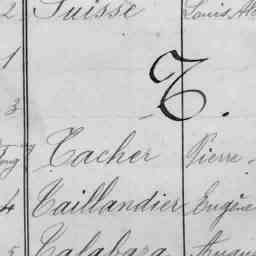 2 Suisse Louis Al
1
T.
3
Tacher Pierre
4 Taillandier Eugène
5 Talabara Augu